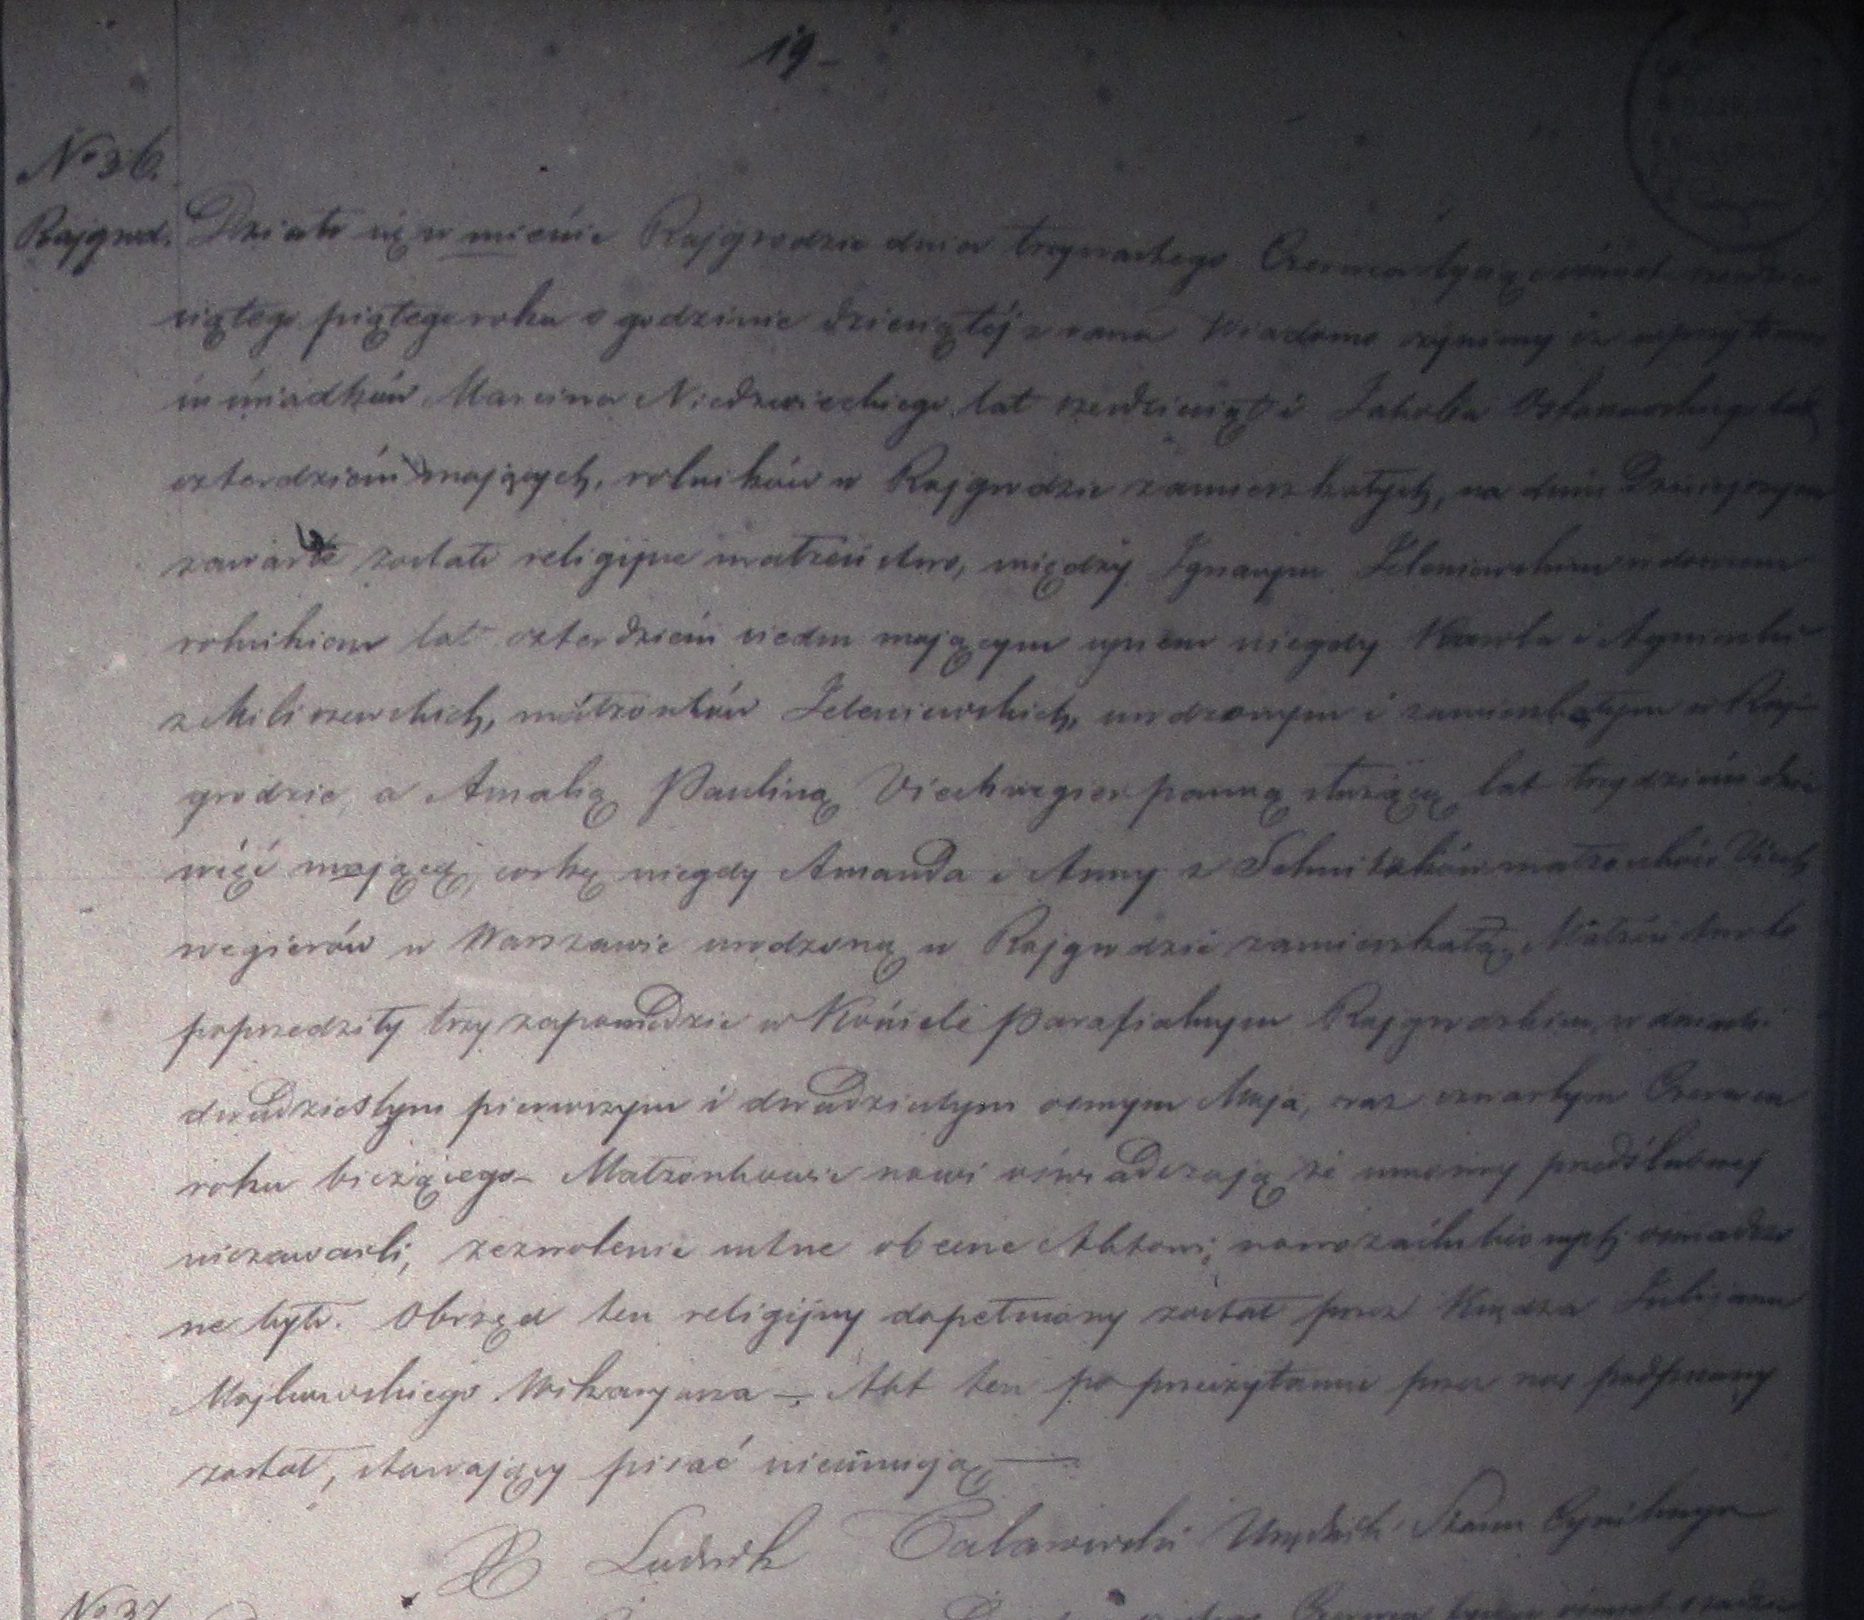 19-
No 36.
Rajgrod. Działo się w mieście Rajgrodzie dnia trzynastego Czerwca tysiąc ośmset
siątego piątego roku o godzinie dziewiątéj z rana Wiadomo czynimy iż w przytomno
ści świadków Marcina Niedzwieckiego lat sześdziesiąt i Jakóba Ostanowskiego lat
czterdzieści mających, rolników w Rajgrodzie zamieszkałych, na dniu dzisiejszym
zawarte zostało religijne małżeństwo, między Ignacym Jeleniewskim wdowcem
rolnikiem lat czterdzieści siedm mającym synem niegdy Karola i Agnieszki
z Miliszewskich, małżonków Jeleniewskich, urodzonym i zamieszkałym w Raj-
grodzie, a Amalią Pauliną Viechweger panną służącą lat trzydzieści dzie
więć mającą, córką niegdy Amanda i Anny z małżonków Viech
wegierów w Warszawie urodzoną w Rajgrodzie zamieszkałą. Małżeństwo to
poprzedziły trzy zapowiedzie w Kościele Parafialnym Rajgrodskim w dniach
dwudziestym pierwszym i dwudziestym osmym Maja, oraz czwartym Czerwca
roku bieżącego- Małżonkowie nowi oświadczają że umowy przedślubnej
niezawarli, zezwolenie ustne obecne Aktowi, nowozaślubionych oświadczo
ne było. Obrzęd ten religijny dopełniony został przez Księdza Julijana
Majkowskiego Wikaryusza -. Akt ten po przeczytaniu przez nas podpisany
został, stawający pisać nieumieją —
X Ludwik Calawewski Urzędnik Stanu Cywilnego
No 37